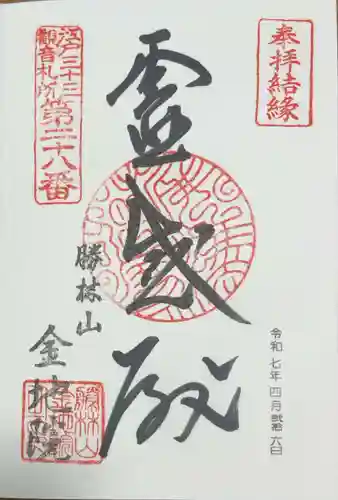 奉拝結縁
江戸三十三
観音札所
第二十八番
霊感殿
勝林山
金地院
令和七年四月弐拾六日